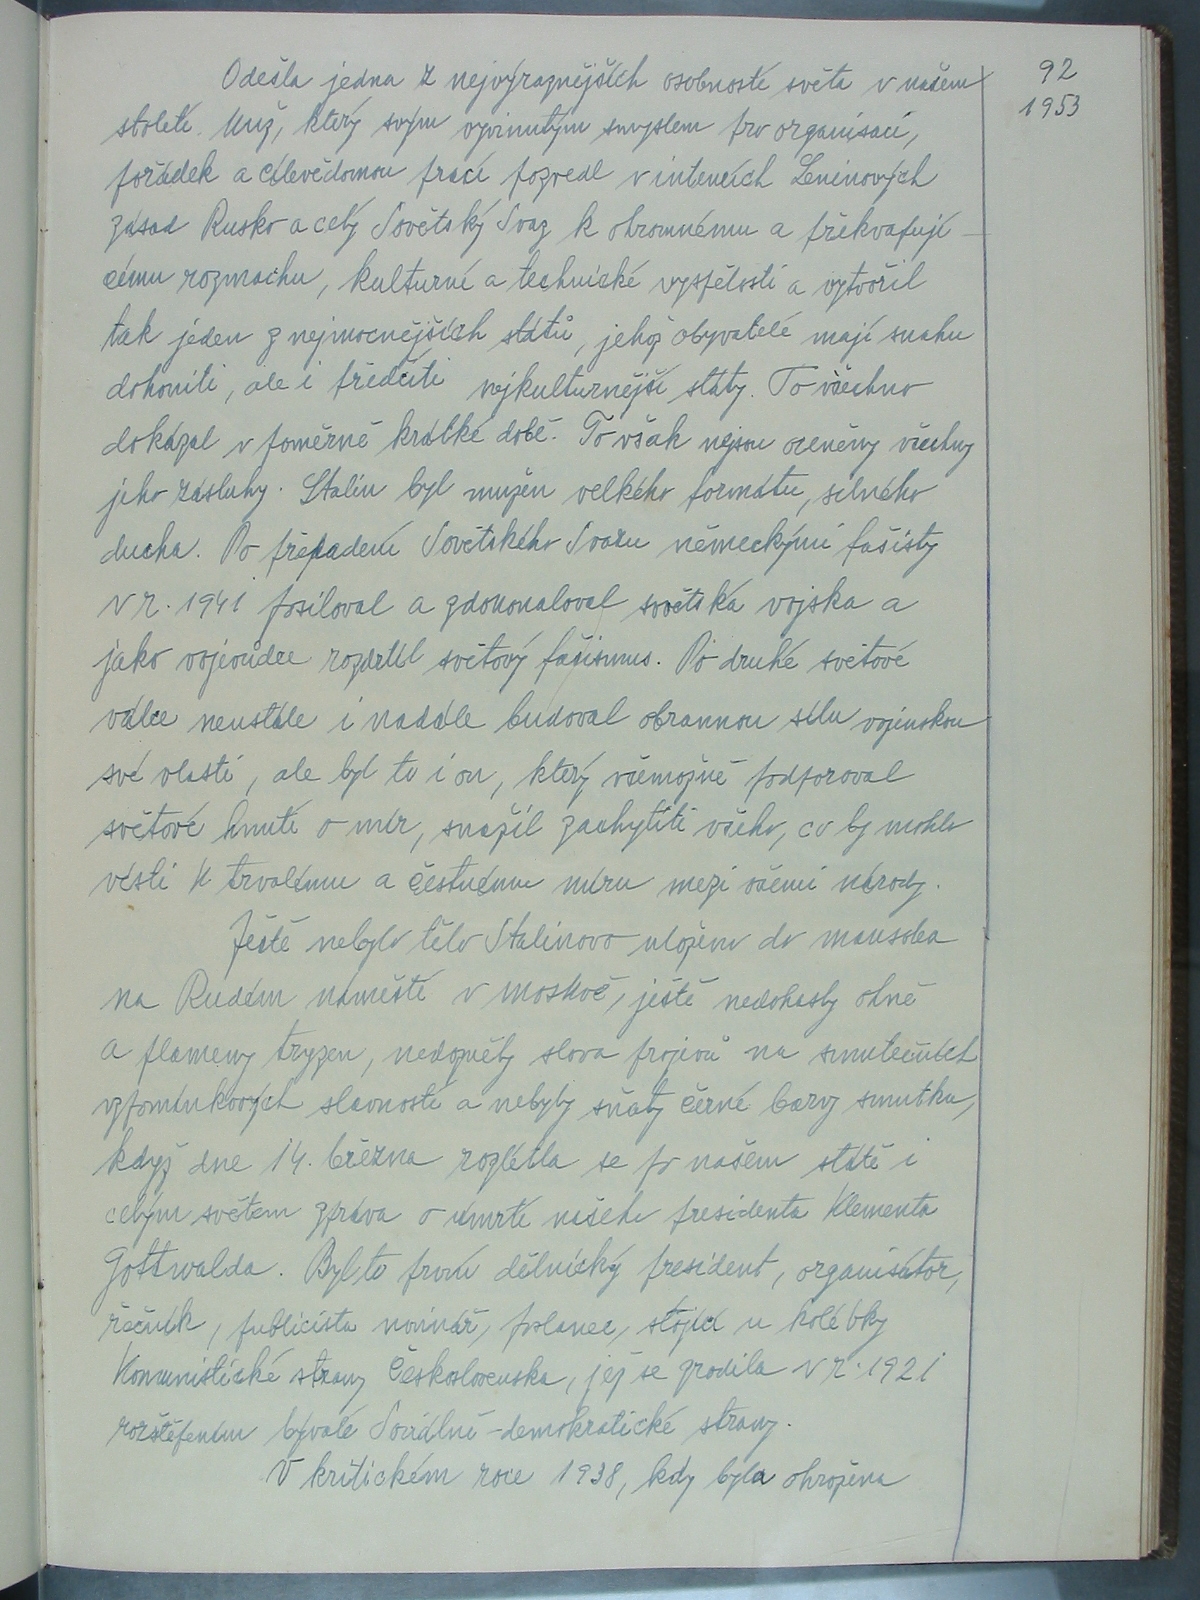 92
1953
Odešla jedna z nejvýraznějších osobností světa v našem
století. Muž, který svým vyvinutým smyslem pro organisaci,
pořádek a cílevědomou prací pozvedl v intencích Leninových
zásad Rusko a celý Sovětský Svaz k ohromnému a překvapují-
címu rozmachu, kulturní a technické vyspělosti a vytvořil
tak jeden z nejmocnějších států, jehož obyvatelé mají snahu
dohoniti, ale i předčiti nejkulturnější státy. To všechno
dokázal v poměrně krátké době. To však nejsou oceněny všechny
jeho zásluhy. Stalin byl mužem velkého formátu, silného
ducha. Po přepadení Sovětského Svazu německými fašisty
v r. 1941 posiloval a zdokonaloval sovětská vojska a
jako vojevůdce rozdrtil světový fašismus. Po druhé světové
válce neustále i nadále budoval obrannou sílu vojenskou
své vlasti, ale byl to i on, který všemožně podporoval
světové hnutí o mír, snažil zachytiti všeho, co by mohlo
vésti k trvalému a čestnému míru mezi všemi národy.
Ještě nebylo tělo Stalinovo uloženo do mausolea
na Rudém náměstí v Moskvě, ještě nedohasly ohně
a plameny tryzen, nedozněly slova projevů na smutečních
vzpomínkových slavností a nebyly sňaty černé barvy smutku,
když dne 14. března rozlétla se po našem státě i
celým světem zpráva o úmrtí našeho presidenta Klementa
Gottwalda. Byl to první dělnický president, organisátor,
řečník, publicista novinář, poslanec, stojící u kolébky
Komunistické strany Československa, jež se zrodila v r. 1921
rozštěpením bývalé Sociálně-demokratické strany.
V kritickém roce 1938, kdy byla ohrožena